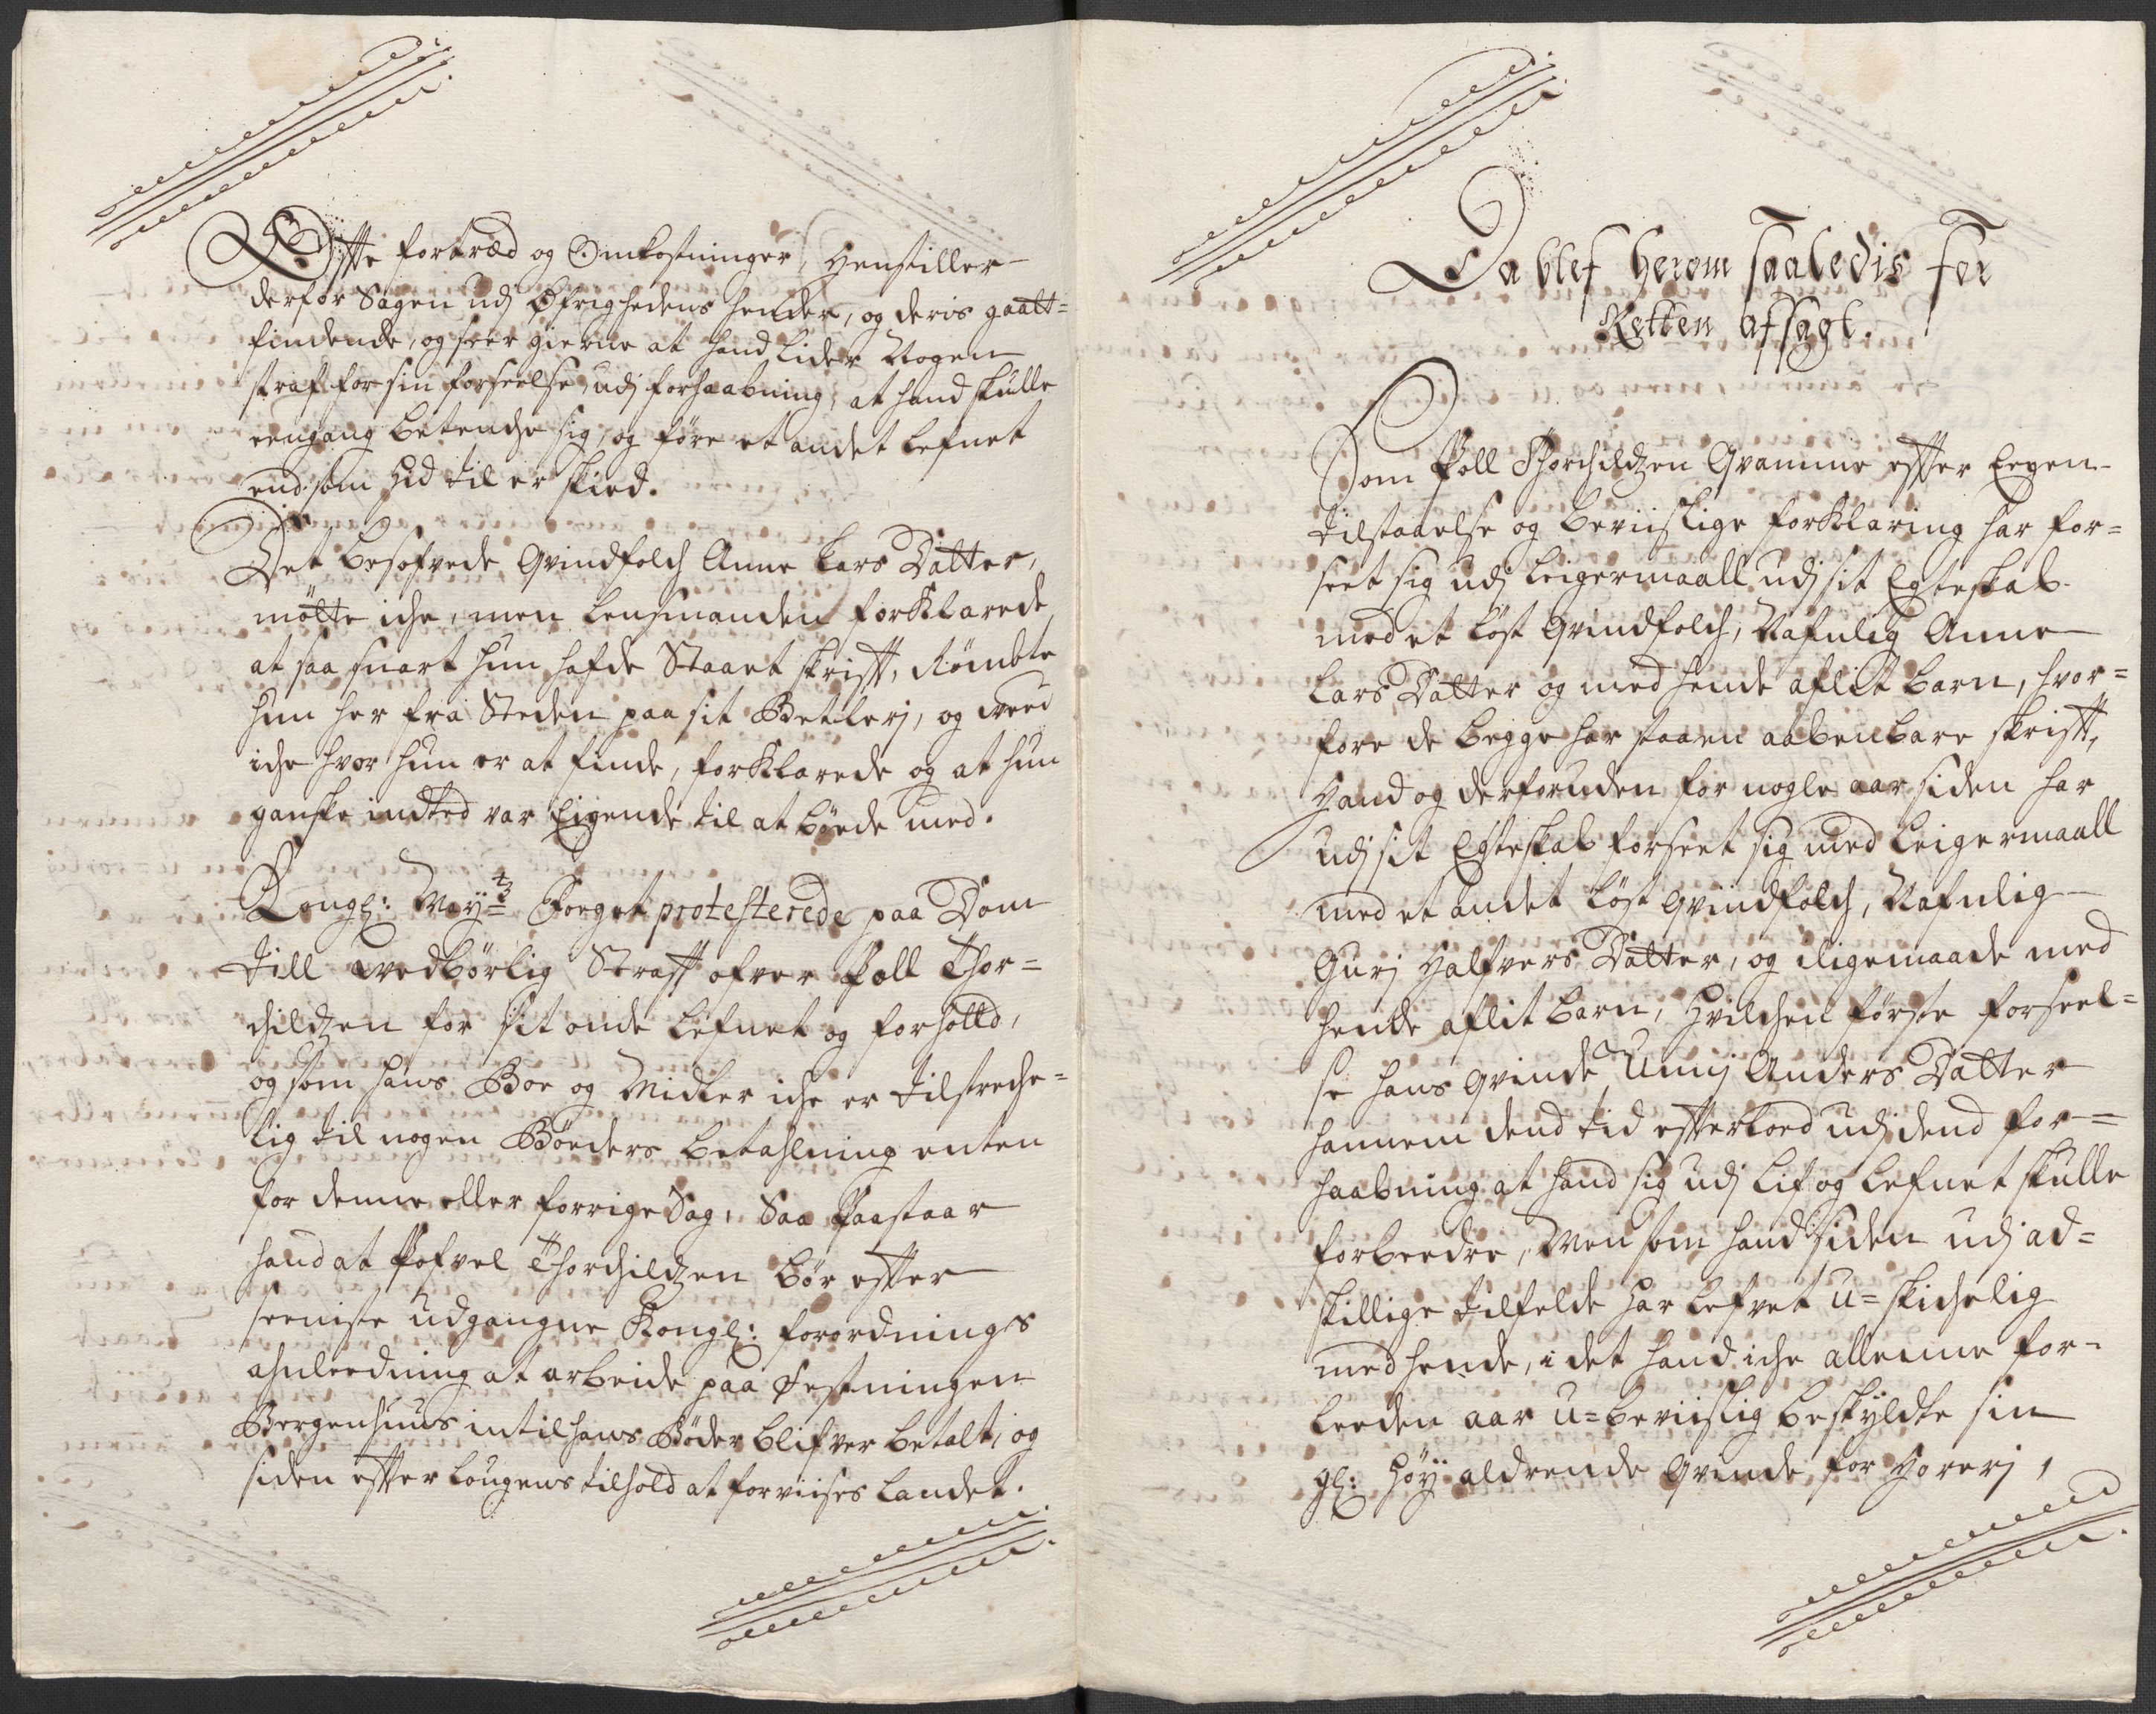 Ofte fortræd og Omkostninger, Henstiller
derfor Sagen udj Øfrighedens hender, og deris gaatt=
findende, og seer gierne at hand Lider Nogen
straf for sin forseelse, udj forhaabning, at hand skulle
eengang betenche sig, og føre et andet lefnet
end som hid til er skied.
Det besofvede Qvindfolch Anne Lars Datter,
mötte iche, men Lensmanden forklarede,
at saa snart hun hafde Staaet skrift, Rømbte
hun her fra Steden paa sit Betlerj, og veed
iche hvor hun er at finde, forklarede og at hun
ganske indted var Eigende til at böede med.
Kongl: May.ts Foeget protesterede paa Dom
till vedbørlig Straff ofver Poll Thor=
childzen for sit onde Lefnet og forholld,
og som hans Boe og Midler iche er tilstreche=
lig til nogen Böeders betahlning enten
for denne eller forrige Sag, Saa Paastaar
hand at Pofvel Thorchildzen bör efter
seeniste udgangne Kongl: forordnings
ahnleedning at arbeide paa Festningen
Bergenhuus intil hans Böder blifver betalt, og
siden efter Lougens tilhold at forviises Landet.
Da blef herom saaledis for
Retten afsagt.
Som Poll Thorchildzen Qvamme efter Eegen
tilstaaelse og beviislige forklaring har for=
seet sig udj Leigermaall udj sit Egteskab
med et löst Qvindfolch, Nafnlig Anne
Lars Datter og med hende aflit barn, hvor=
fore de begge har staaen aabenbare skrift,
Hand og derforuden for nogle aar siden har
udj sit Egteskab forseet sig med Leigermaall
med et andet löst Qvindfolch, Nafnlig
Gurj Halfvers Datter, og iligemaade med
hende aflit barn, Hvilchen förste forseel=
se hans Qvinde Unnj Anders Datter
hannem dend tid efterloed udj dend for=
haabning at hand sig udj Lif og Lefnet skulle
forbeedre, Men som hand siden udj ad=
skillige tilfelde har lefvet u=skichelig
med hende, i det hand iche allenne for=
leeden aar u=beviislig beskyldte sin
gl: höy aldrende Qvinde for Horerj,